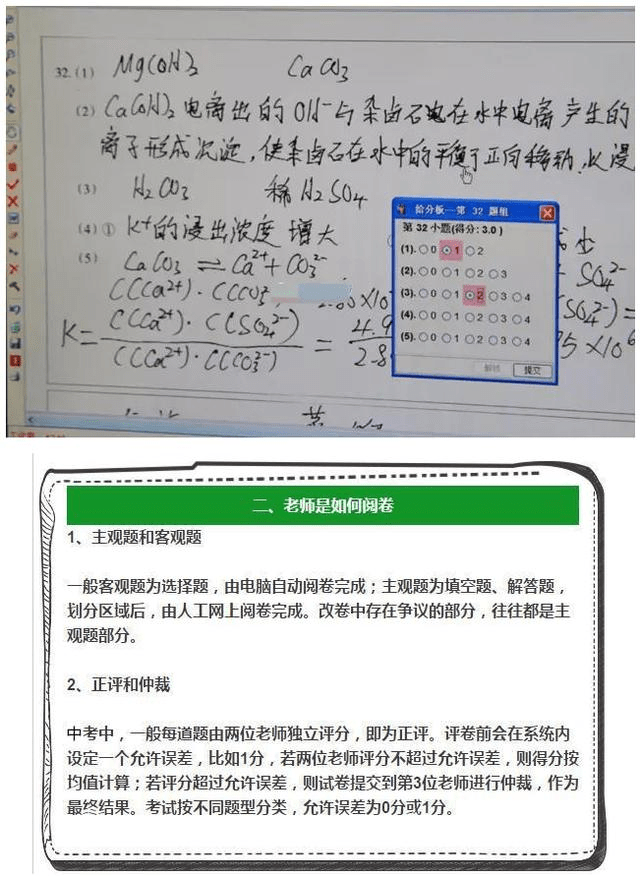 32.(1) Mg(OH)2 CaCO3
(2) Ca(OH)2 电离出的 OH-与杂卤石电在水中电离产生的
离子形成沉淀，使杂卤石在水中的平衡于正向移动，以浸
(3) H2CO3 稀 H2SO4
(4) ① K+的浸出浓度 增大
(5) CaCO3 ⇌ Ca2+ + CO32- SO42-
C(Ca2+)·C(CO32-
K= C(Ca2+)·C(SO42-) / C(Ca2+)·C(CO32-) = 4.9 / 2.8
给分板—第 32 题组
第 32 小题(得分: 3.0)
(1). 0 1 2
(2). 0 1 2 3
(3). 0 1 2 3 4
(4). 0 1 2 3 4
(5). 0 1 2 3 4
提交
二、老师是如何阅卷
1、主观题和客观题
一般客观题为选择题，由电脑自动阅卷完成；主观题为填空题、解答题，
划分区域后，由人工网上阅卷完成。改卷中存在争议的部分，往往都是主
观题部分。
2、正评和仲裁
中考中，一般每道题由两位老师独立评分，即为正评。评卷前会在系统内
设定一个允许误差，比如1分，若两位老师评分不超过允许误差，则得分按
均值计算；若评分超过允许误差，则试卷提交到第3位老师进行仲裁，作为
最终结果。考试按不同题型分类，允许误差为0分或1分。